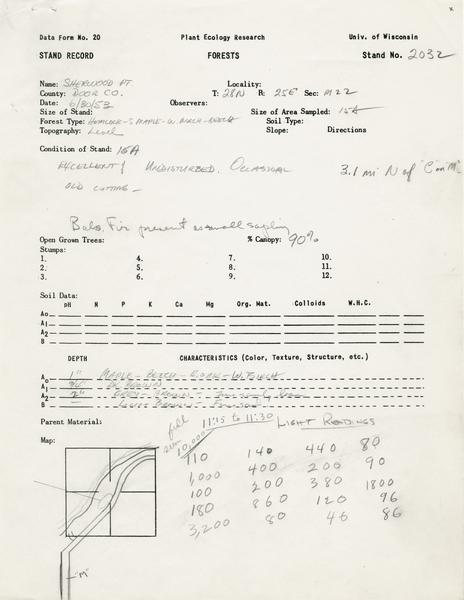 Data Form No. 20 Plant Ecology Research Univ. of Wisconsin
STAND RECORD FORESTS Stand No. 2032
Name: SHERWOOD PT. Locality:
County: DOOR CO. T: 28N R: 25E Sec:
Date: 6/30/53 Observers:
Size of Stand: Size of Area Sampled: 15A
Forest Type: HEMLOCK-S MAPLE-W. BIRCH-BEECH Soil Type:
Topography: Level Slope: Directions
Condition of Stand: 15A
EXCELLENT! UNDISTURBED. OCCASIONAL 3.1 mi N of "C" on "M"
OLD CUTTING -
Bals. Fir present as small sapling
Open Grown Trees: % Canopy: 90%
Stumps:
1. 4. 7. 10.
2. 5. 8. 11.
3. 6. 9. 12.
Soil Data:
pH N P K Ca Mg Org. Mat. Colloids W.H.C.
Ao
A1
A2
B
DEPTH CHARACTERISTICS (Color, Texture, Structure, etc.)
Ao 1" MAPLE - BEECH -
A1 BROWN
A2 2" GREY - BROWN -
B LIGHT BROWN -
Parent Material: full sun 10,000 11:15 to 11:30 LIGHT READINGS
Map:
110 140 440 80
1,000 400 200 90
100 200 380 1800
180 860 120 96
3,200 80 46 86
"M"